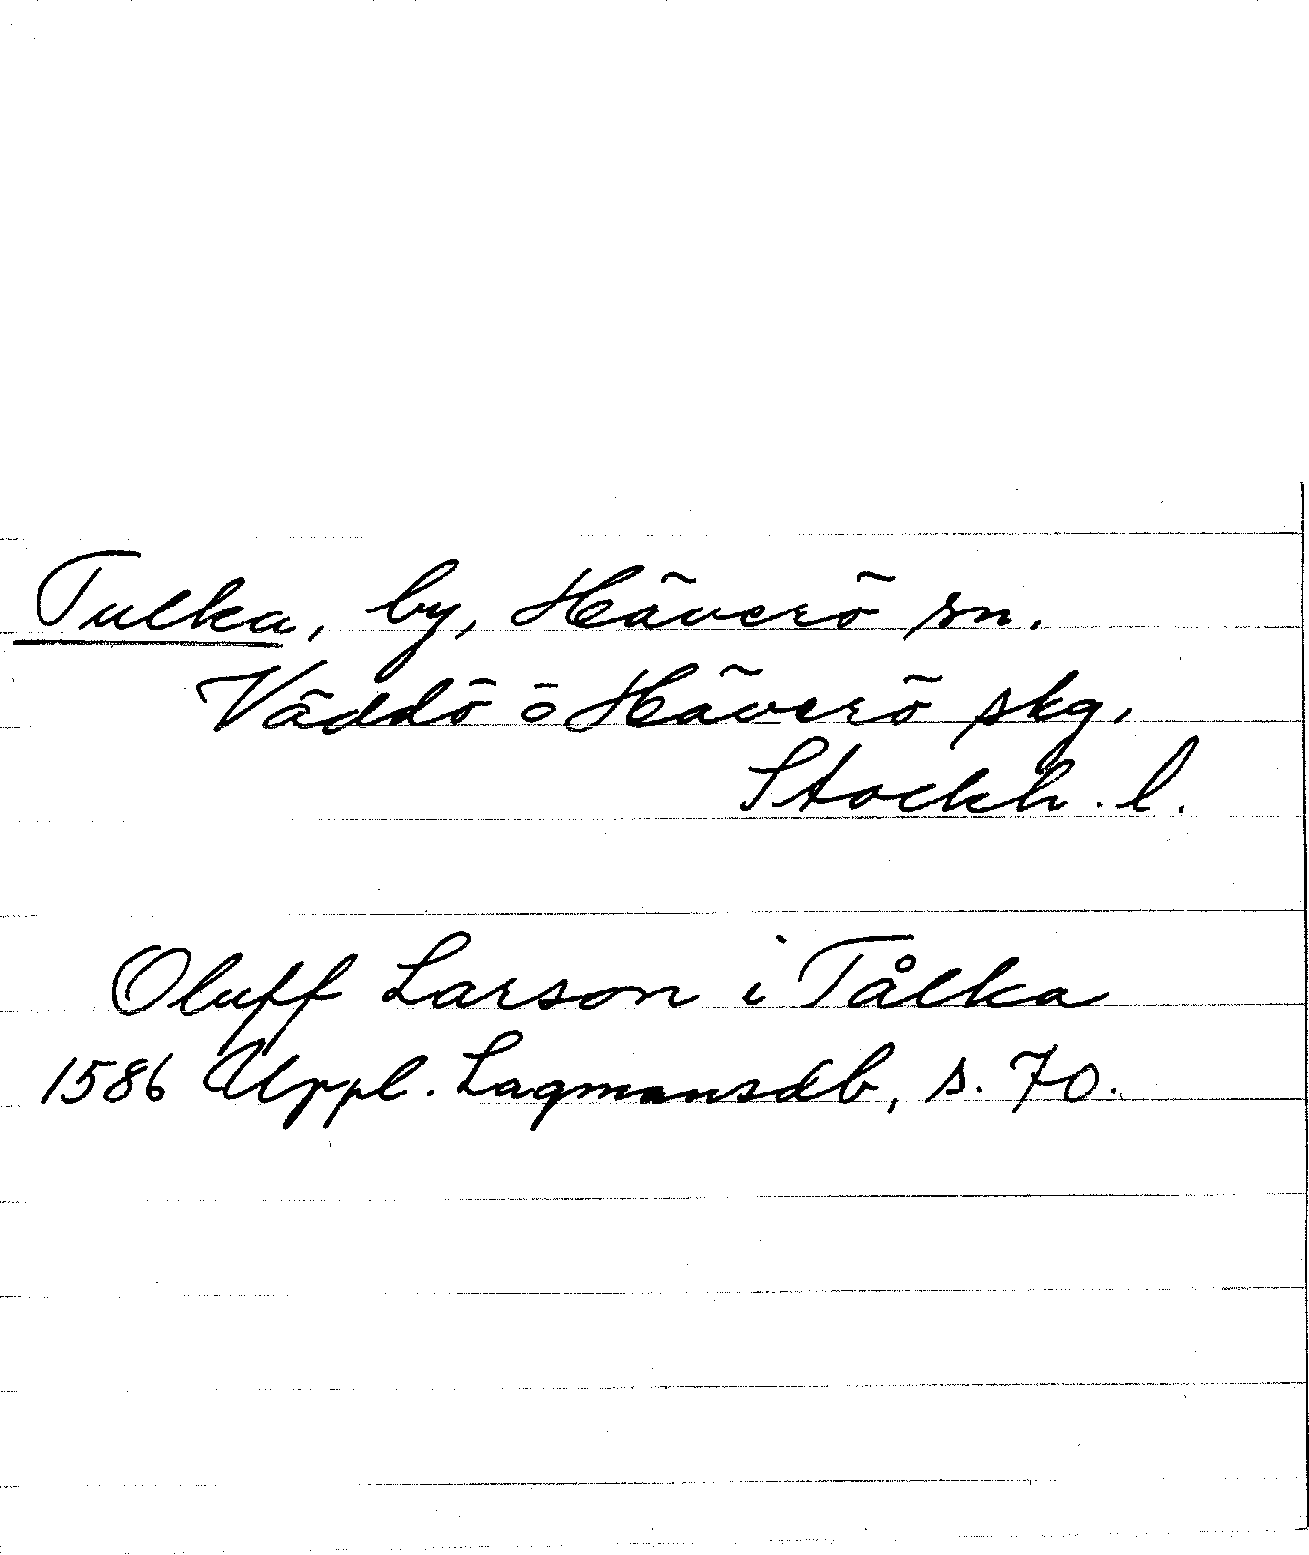 Tulka, by, Häverö sn.
Väddö o Häverö skg,
Stockh. l.
Oluff Larson i Tålka
1586 Uppl. Lagmansdb, s. 70.